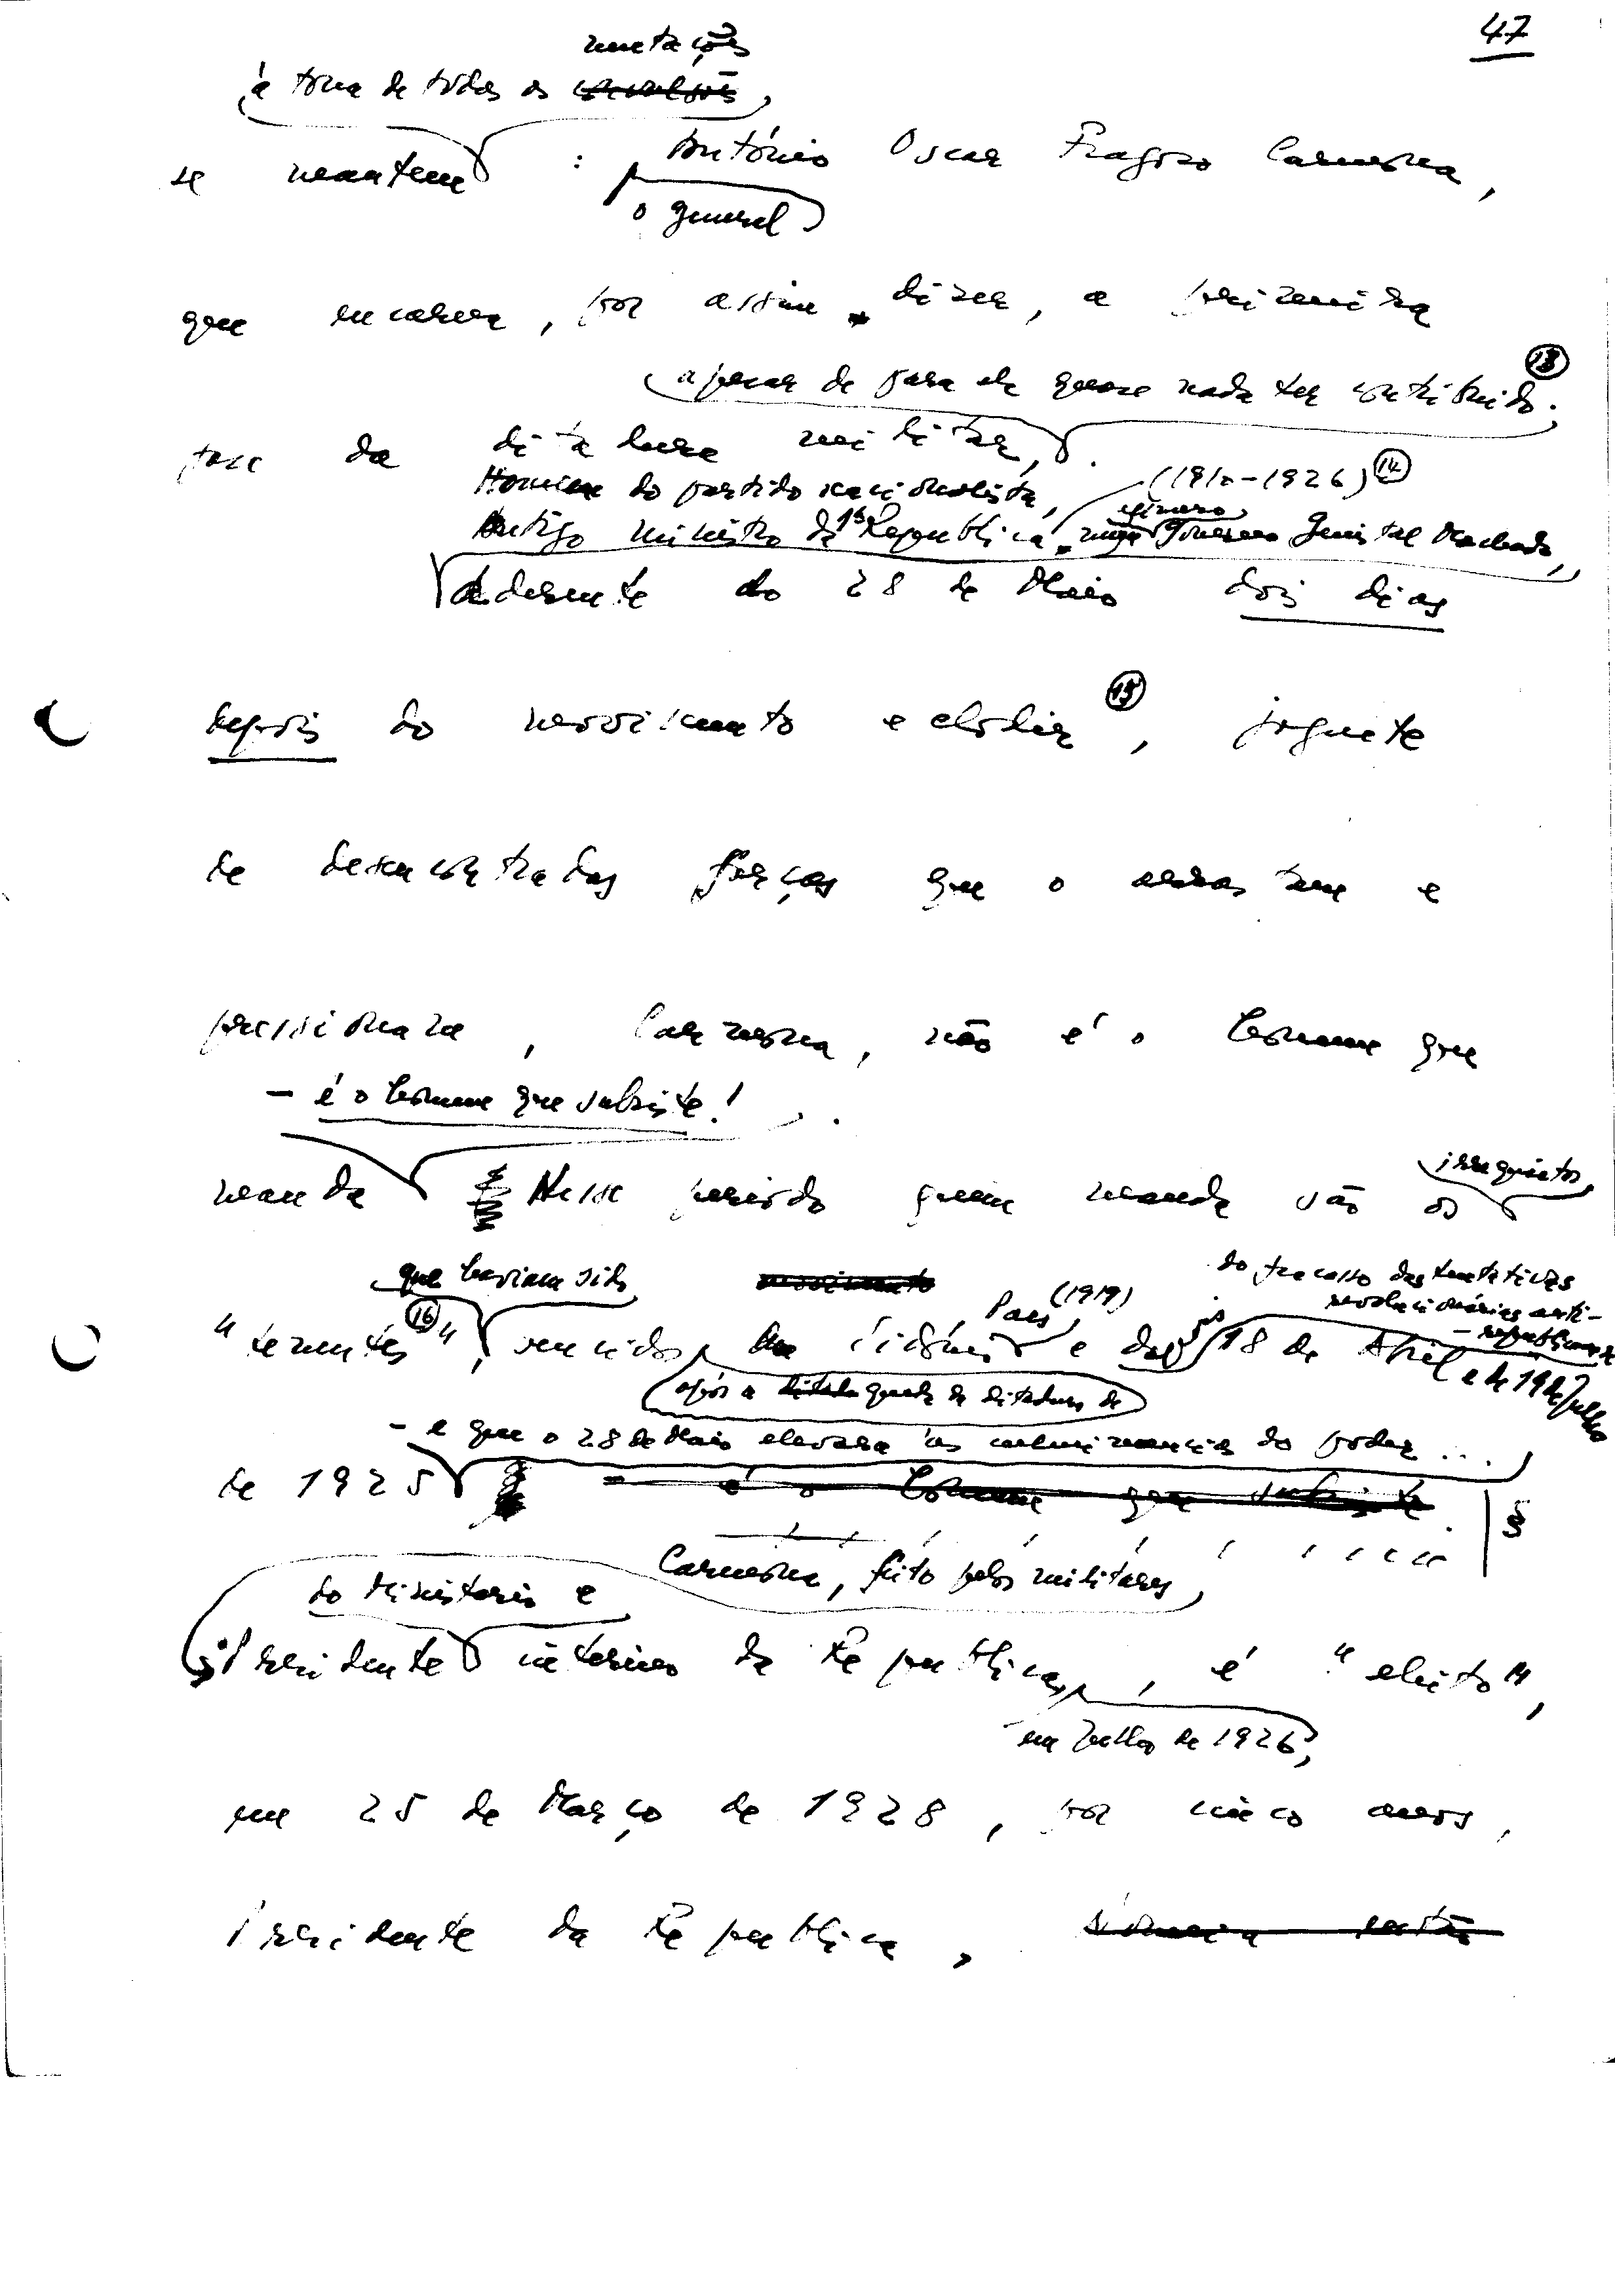 47
mutações
à tona de todas as convulsões,
se mantem : António Oscar Fragoso Carmona,
o general
que encarna, por assim dizer, a primeira
apesar de para ela quase nada ter contribuido. (13)
fase da ditadura militar,
Homem do partido nacionalista, (1910-1926) (14)
Antigo ministro da 1ª República, efémero Governo Ginestal Machado,
aderente do 28 de Maio dois dias
depois do movimento eclodir (15), joguete
de desencontradas forças que o arrastam e
pressionam, Carmona, não é o homem que
- é o homem que subsiste!
manda Nesse período quem manda são os
irrequietos
que haviam sido movimento (1919) do fracasso das tentativas
revolucionárias anti-
-republicanas
"tenentes" (16), vencidos de Sidónio Pais e das 18 de Abril e de 19 de Julho
após a queda da ditadura de
- e que o 28 de Maio elevara às culminancias do poder ...
de 1925 - é o homem que subsiste. §
Carmona, feito pelos militares,
do Ministerio e
Presidente interino da República, é "eleito",
em Julho de 1926,
em 25 de Março de 1928, por cinco anos,
Presidente da República,